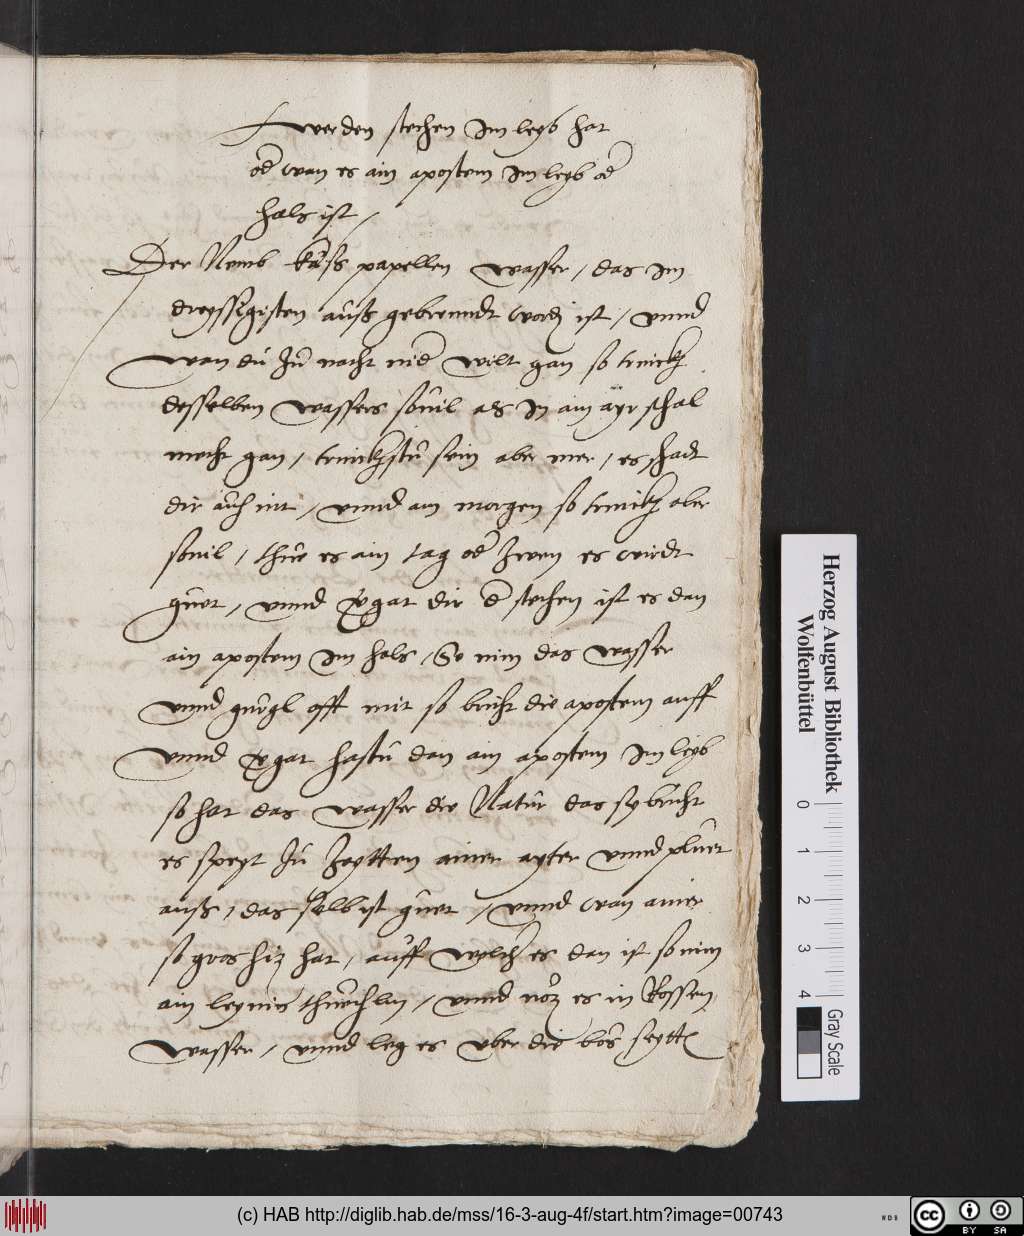 werden stechen im leyb hat
od wan es ain apostem im leyb od
hals ist /
Der Nemb käß papellen wasser / das im
dreyssigisten auß gebrenndt word ist / vnnd
wan du zu nacht nid wilt gan so trinckh
desselben wassers souil als in ain ayr schal
mecht gan / trinckhstu sein aber mer / es schadt
dir auch nit / vnnd am morgen so trinckh aber
souil / thue es ain tag od zwen es wirdt
guet / vnnd vgat dir d stechen ist es dan
ain apostem im hals / So nim das wasser
vnnd gurgl offt mit so bricht die apostem auff
vnnd vgat hastu dan ain apostem im leyb
so hat das wasser die Natur das sy bricht
es speyt zu zeytten ainer ayter vnnd pluet
auß / das selb ist guet / vnnd wan ainer
so gros hiz hat / auff welch es dan ist so nim
ain leynis thuechlin / vnnd nöz es in Rossen
wasser / vnnd leg es vber die bös seytt
Herzog August Bibliothek
Wolfenbüttel
0 1 2 3 4
Gray Scale
(c) HAB http://diglib.hab.de/mss/16-3-aug-4f/start.htm?image=00743
WDB
cc BY SA